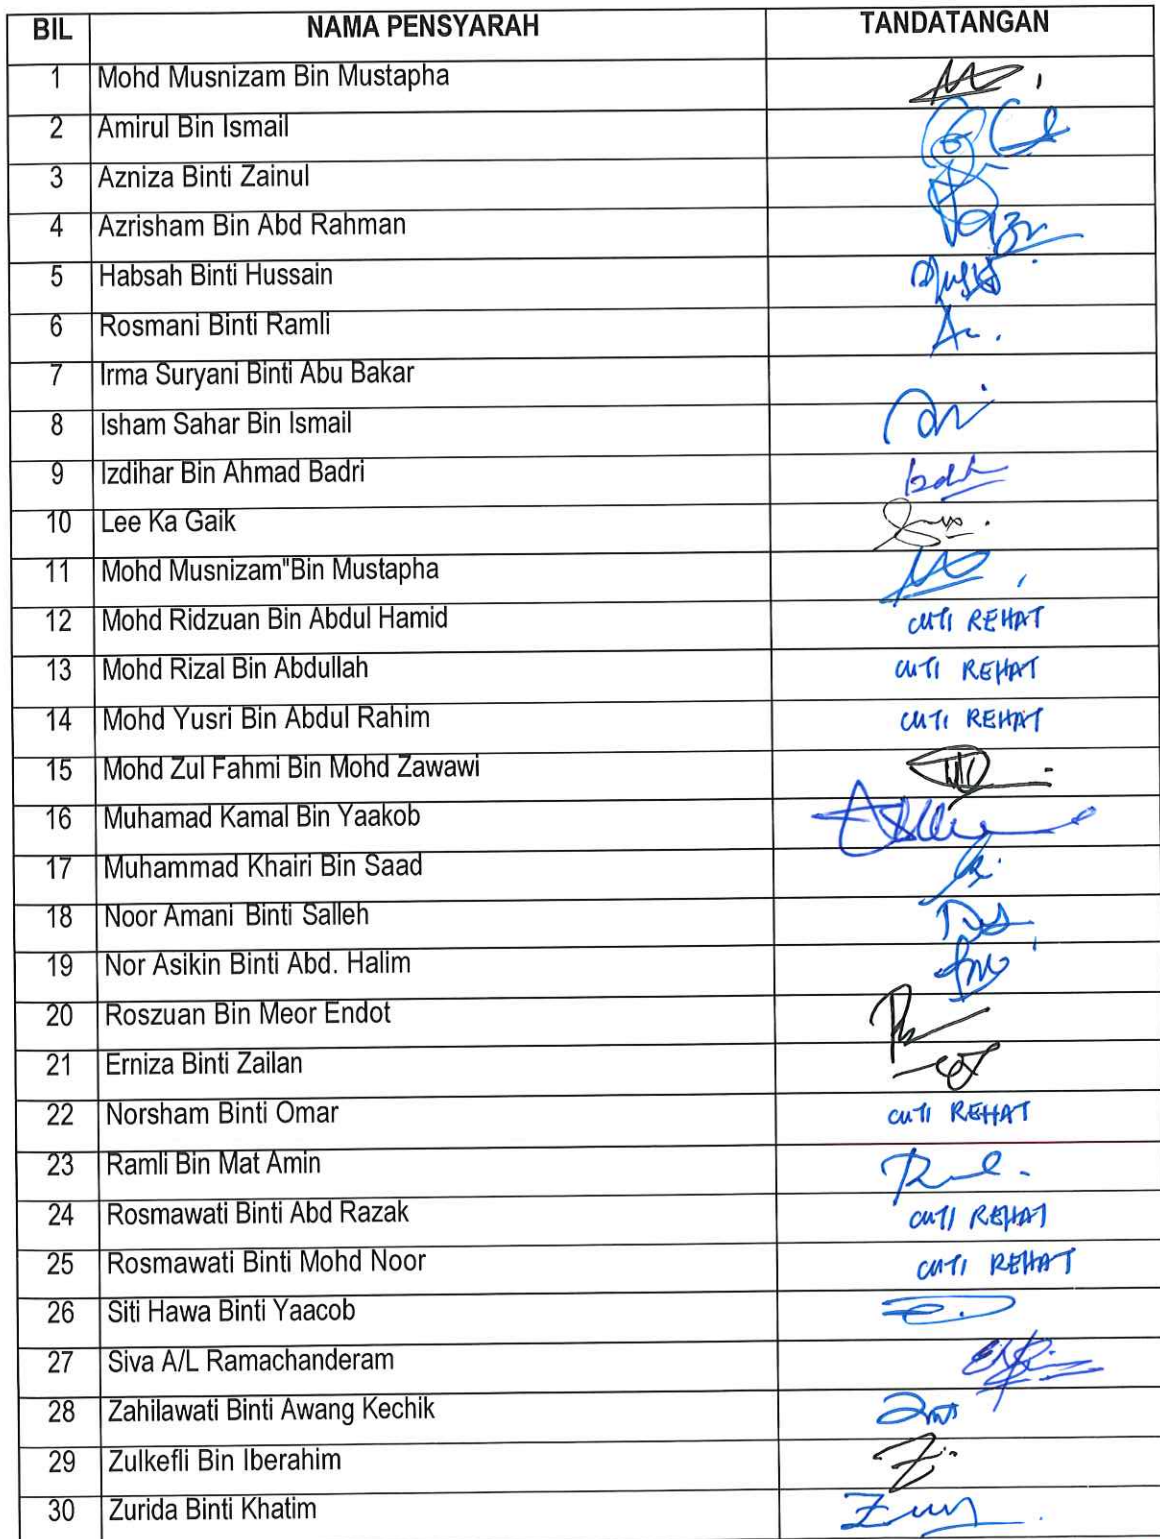 BIL NAMA PENSYARAH TANDATANGAN
1 Mohd Musnizam Bin Mustapha
2 Amirul Bin Ismail
3 Azniza Binti Zainul
4 Azrisham Bin Abd Rahman
5 Habsah Binti Hussain
6 Rosmani Binti Ramli
7 Irma Suryani Binti Abu Bakar
8 Isham Sahar Bin Ismail
9 Izdihar Bin Ahmad Badri
10 Lee Ka Gaik
11 Mohd Musnizam"Bin Mustapha
12 Mohd Ridzuan Bin Abdul Hamid CUTI REHAT
13 Mohd Rizal Bin Abdullah CUTI REHAT
14 Mohd Yusri Bin Abdul Rahim CUTI REHAT
15 Mohd Zul Fahmi Bin Mohd Zawawi
16 Muhamad Kamal Bin Yaakob
17 Muhammad Khairi Bin Saad
18 Noor Amani Binti Salleh
19 Nor Asikin Binti Abd. Halim
20 Roszuan Bin Meor Endot
21 Erniza Binti Zailan
22 Norsham Binti Omar CUTI REHAT
23 Ramli Bin Mat Amin
24 Rosmawati Binti Abd Razak CUTI REHAT
25 Rosmawati Binti Mohd Noor CUTI REHAT
26 Siti Hawa Binti Yaacob
27 Siva A/L Ramachanderam
28 Zahilawati Binti Awang Kechik
29 Zulkefli Bin Iberahim
30 Zurida Binti Khatim